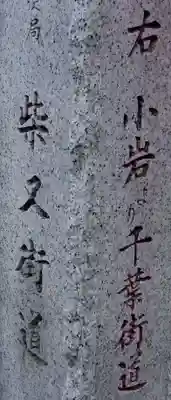 右 小岩より千葉街道
柴又街道
局